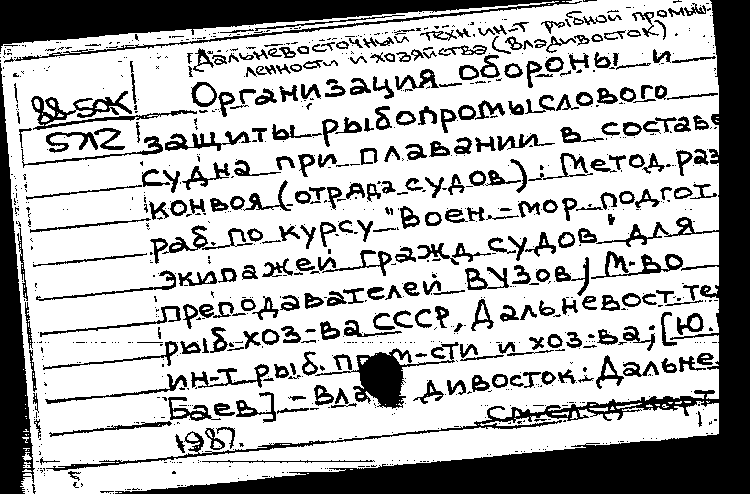 [Дальневосточный техн. ин-т рыбной промыш-
ленности и хозяйства (Владивосток).
88-50К
5712
Организация обороны и
защиты рыбопромыслового
судна при плавании в составе
конвоя (отряда судов): Метод. раз
раб. по курсу "Воен.-мор. подгот.
экипажей гражд. судов" для
преподавателей ВУЗов / М-во
рыб. хоз-ва СССР, Дальневост. тех
ин-т рыб. пром-сти и хоз-ва; [Ю.
Баев] - Владивосток: Дальне
1987.
см. след. карт